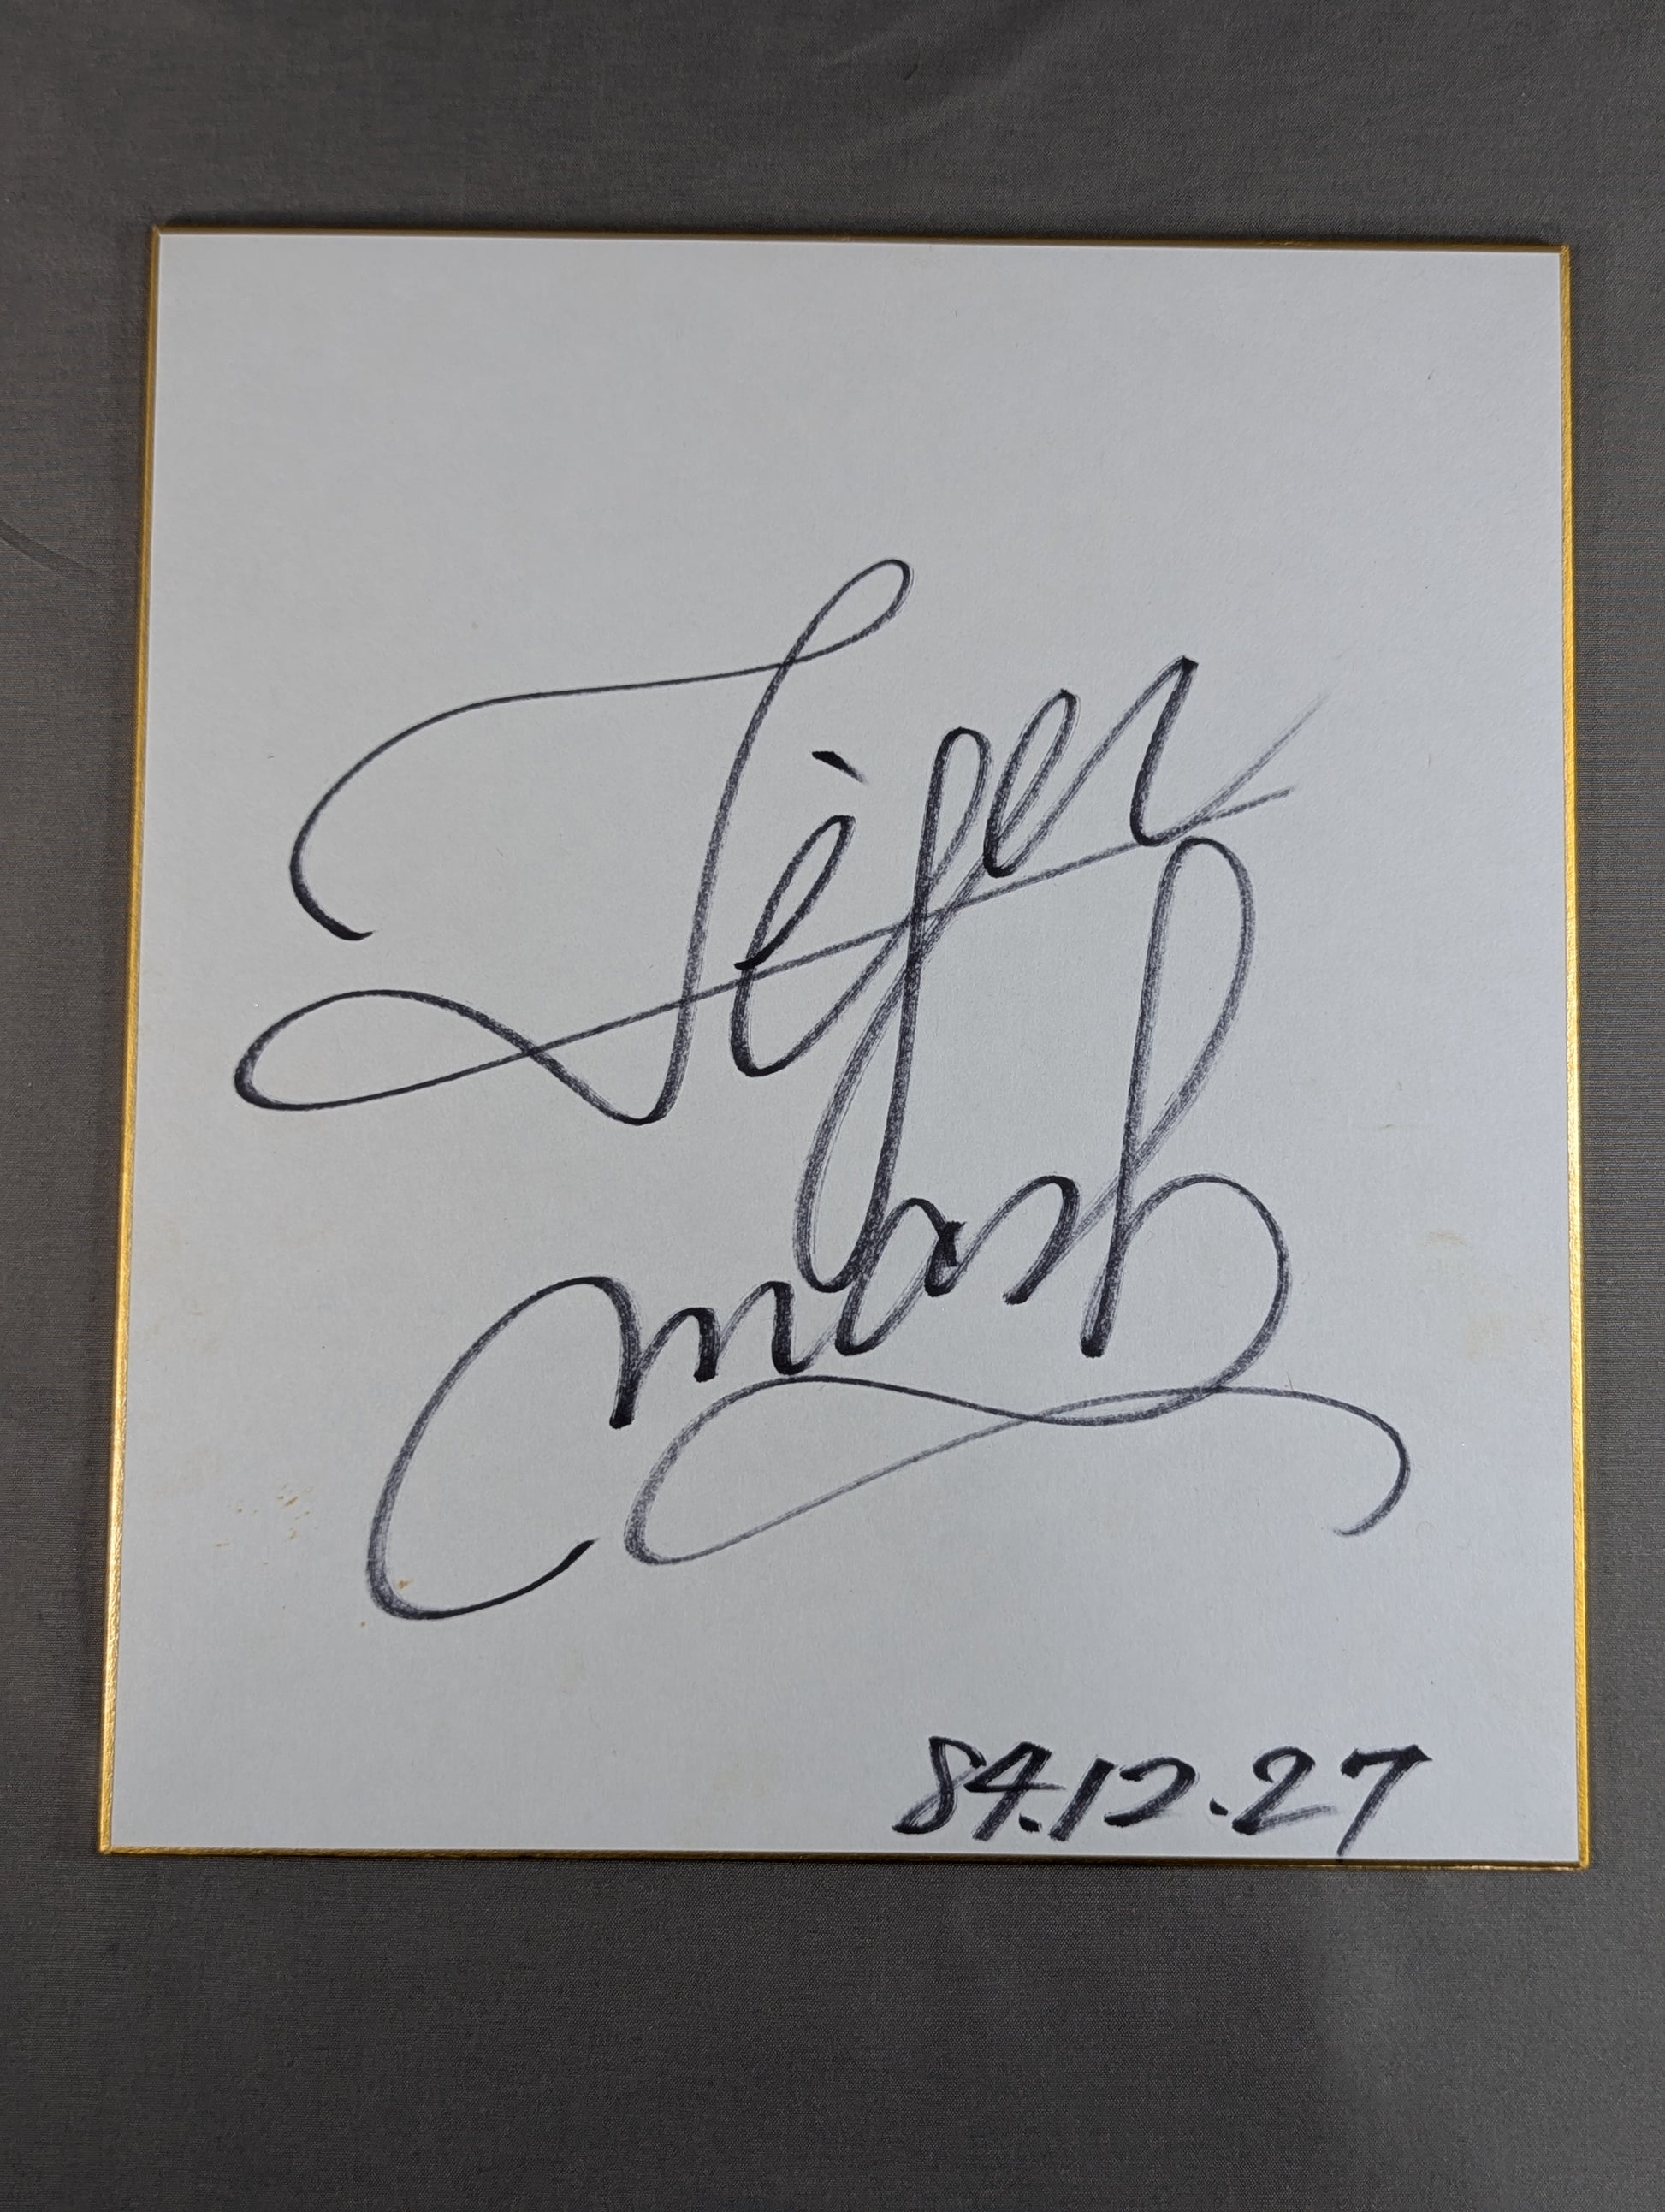 Tiger
Mask
84.12.27